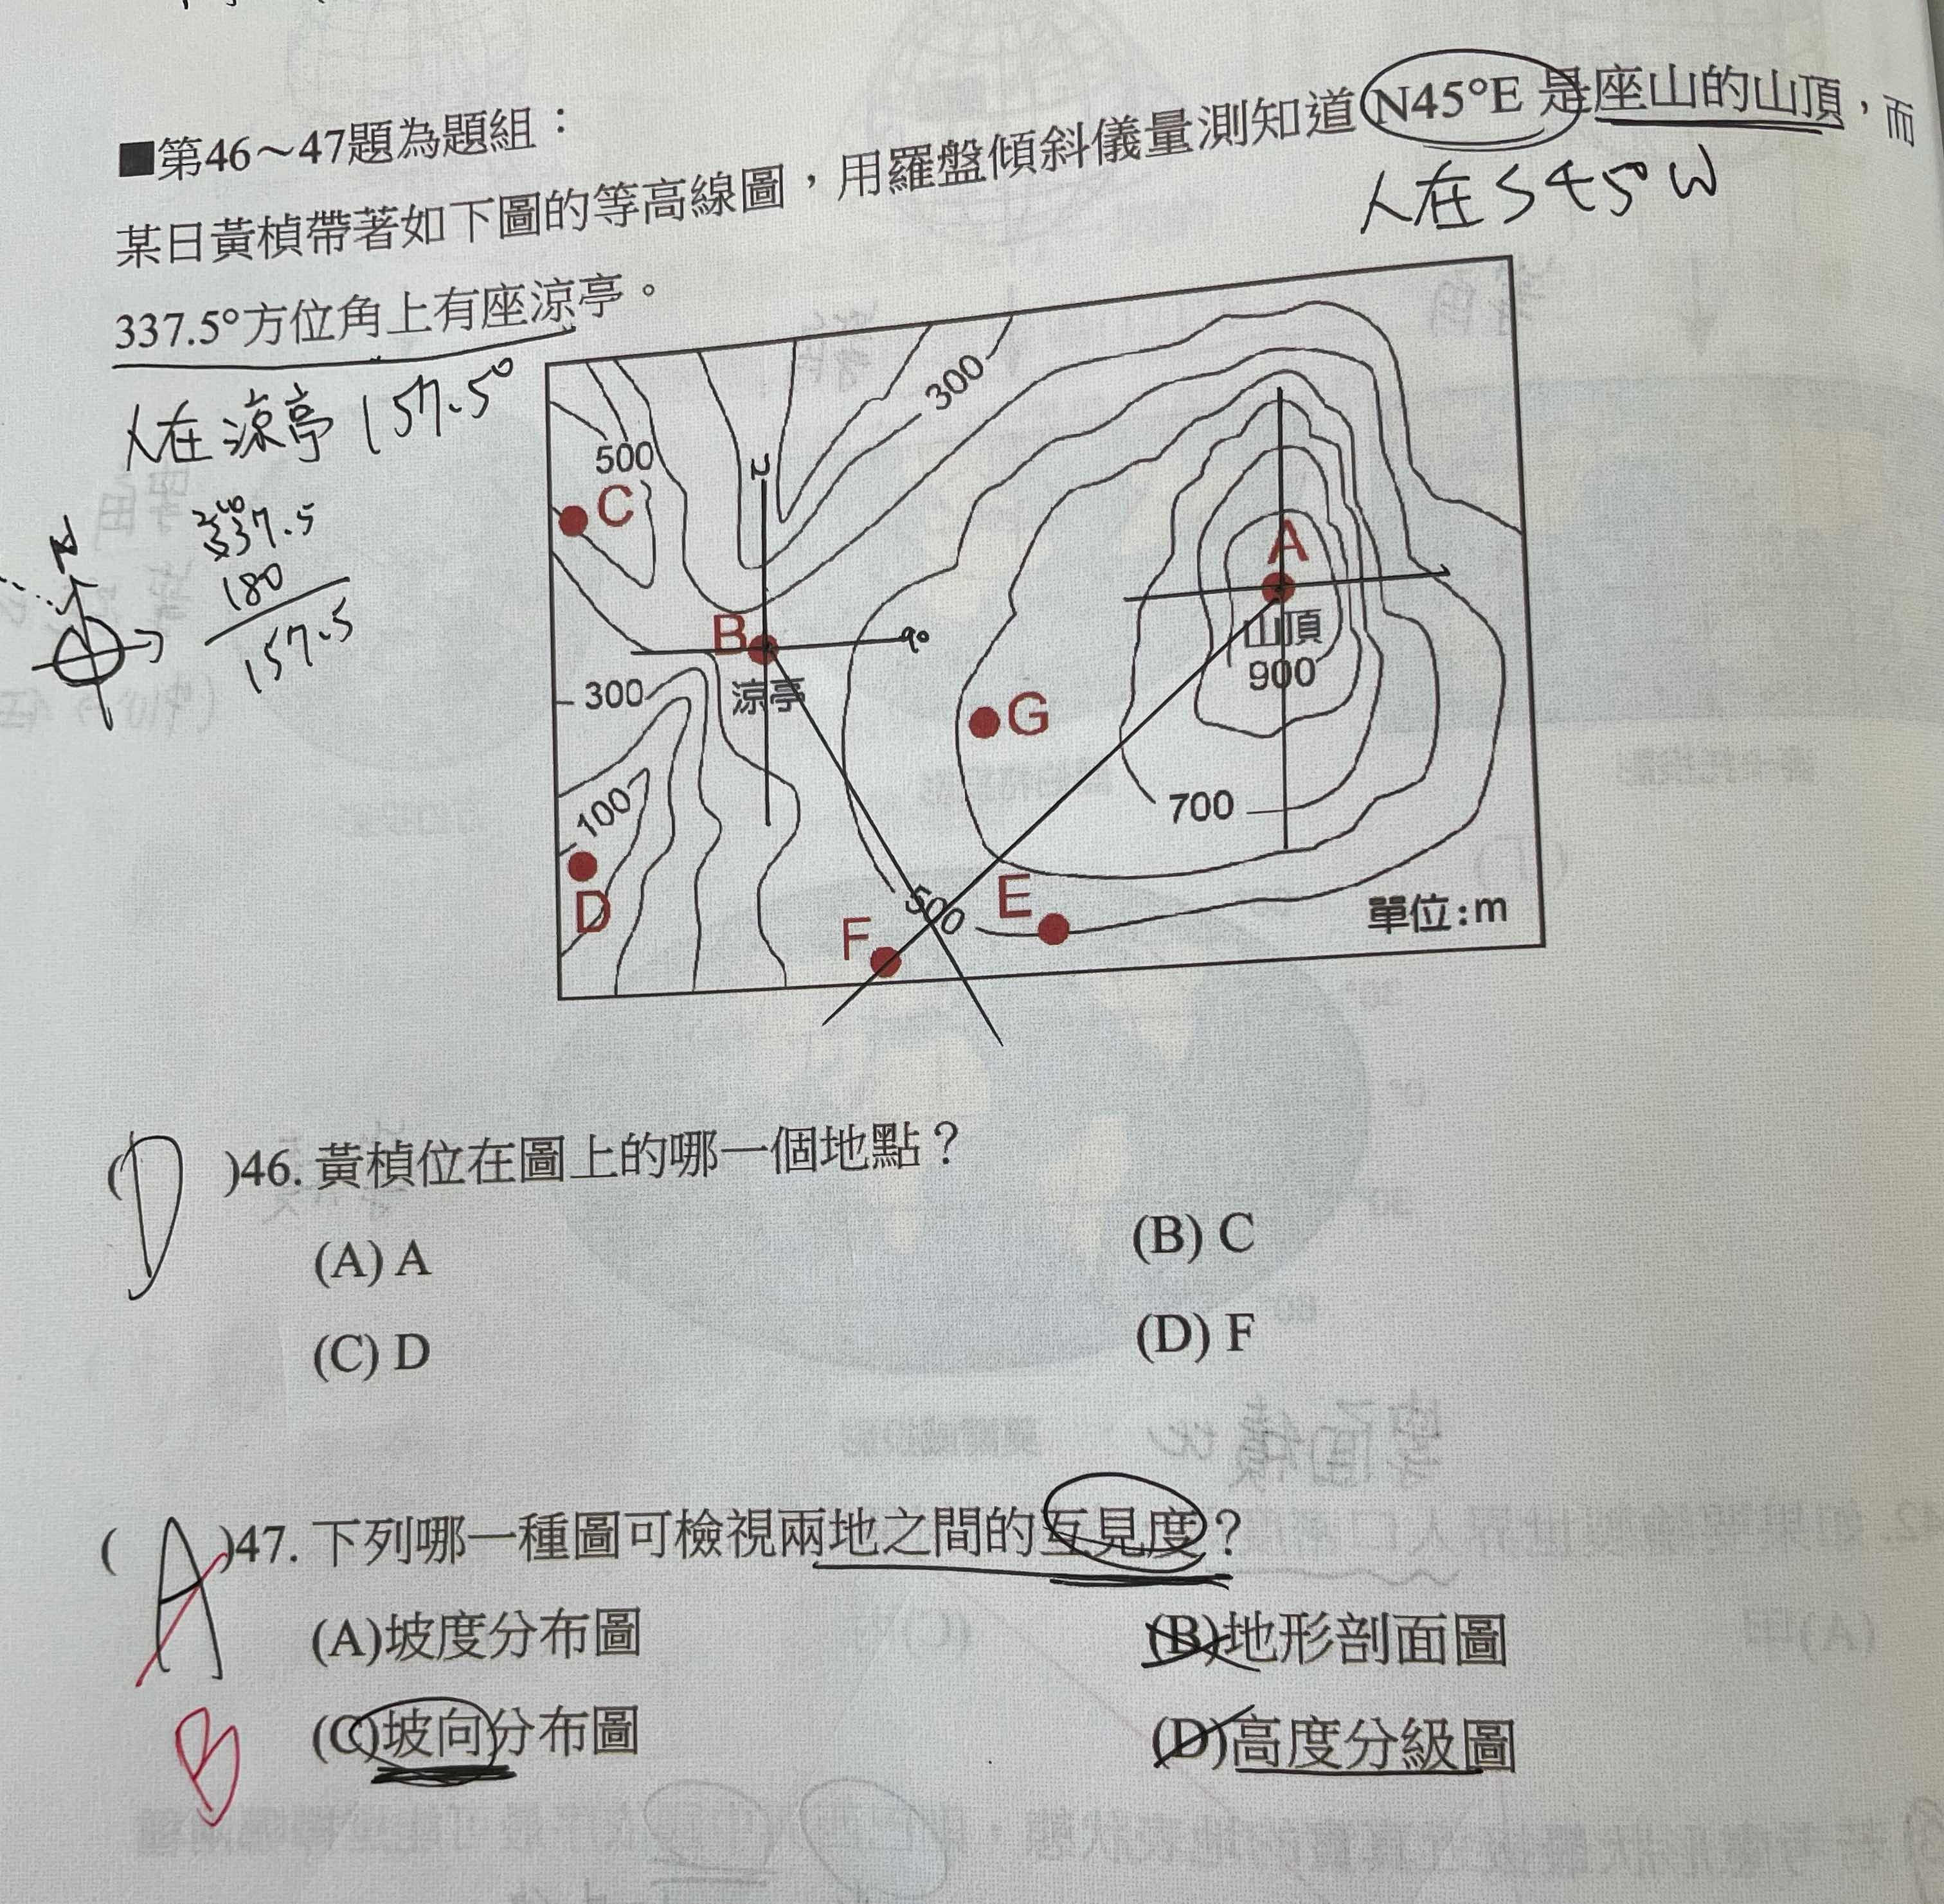 ■第46～47題為題組：
某日黃楨帶著如下圖的等高線圖，用羅盤傾斜儀量測知道N45°E 是座山的山頂，而
人在S45°W
337.5°方位角上有座涼亭。
人在涼亭157.5°
N
337.5
180
157.5
300
500
C
N
A
山頂
900
B
90
涼亭
300
G
100
700
D
500
E
F
單位:m
(D)46. 黃楨位在圖上的哪一個地點？
(A) A
(B) C
(C) D
(D) F
(A)47. 下列哪一種圖可檢視兩地之間的互見度？
(A)坡度分布圖
(B)地形剖面圖
B
(C)坡向分布圖
(D)高度分級圖